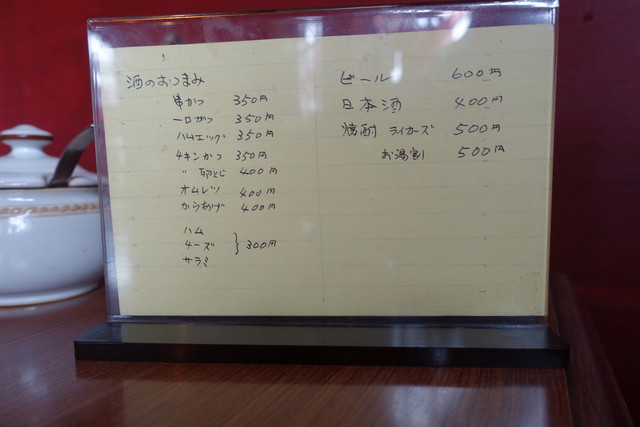 酒のおつまみ
串かつ 350円
一口かつ 350円
ハムエッグ 350円
チキンかつ 350円
〃 卵とじ 400円
オムレツ 400円
からあげ 400円
ハム
チーズ } 300円
サラミ
ビール 600円
日本酒 400円
焼酎 ライカーズ 500円
お湯割 500円